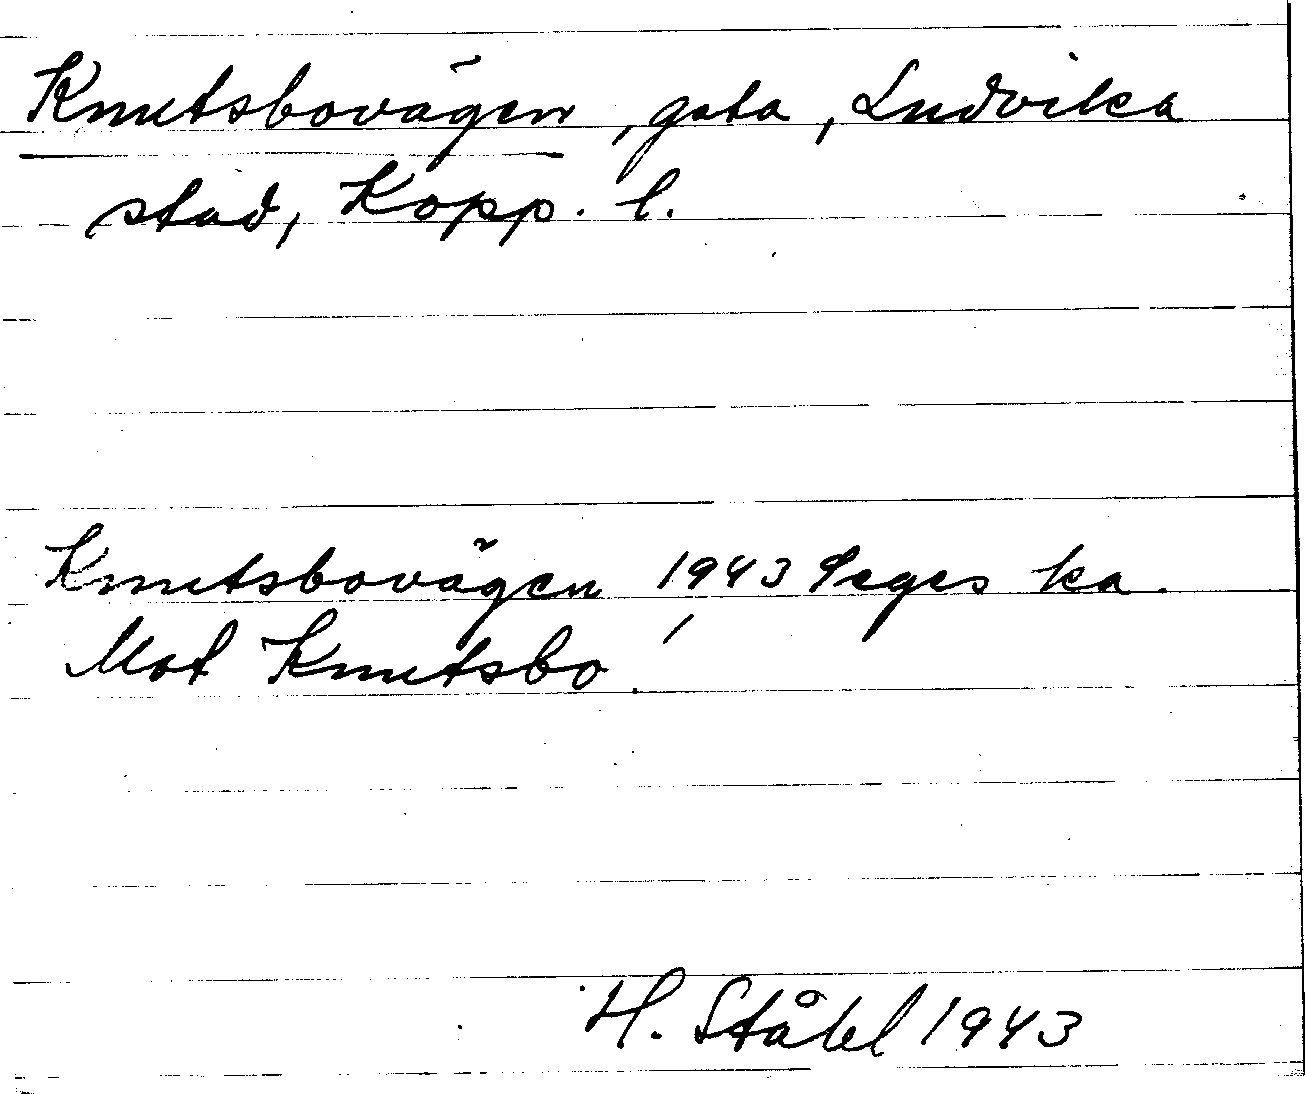 Knutsbovägen, gata, Ludvika
stad, Kopp. l.
Knutsbovägen 1943 Seges ka.
Mot Knutsbo.
H. Ståhl 1943